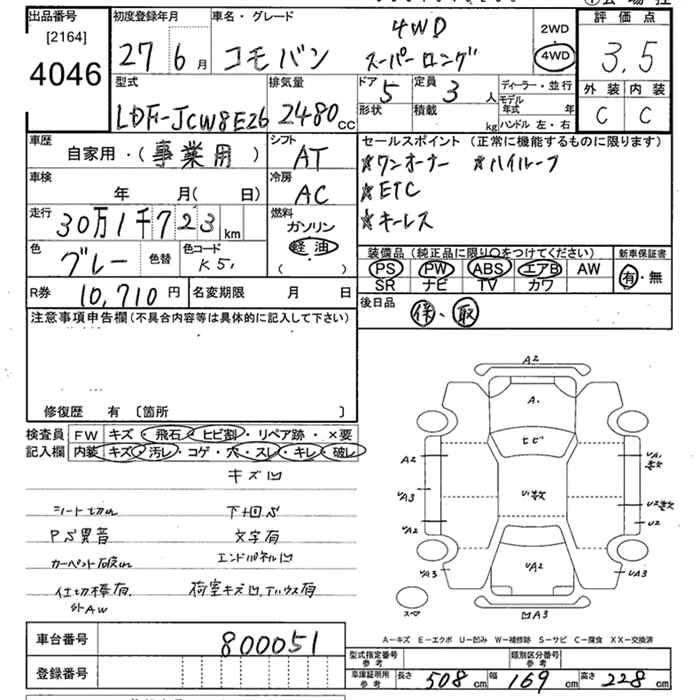 出品番号 [2164] 4046
初度登録年月 27 6月
車名・グレード コモバン 4WD スーパーロング
2WD 4WD
評価点 3.5
外装 内装 C C
型式 LDF-JCW8E26
排気量 2480cc
ドア 5 形状
定員 3人 積載 kg
ディーラー・並行
モデル年式 年
ハンドル 左・右
車歴 自家用・(事業用)
シフト AT
車検 年 月(日)
冷房 AC
走行 30万1千723km
燃料 ガソリン 軽油 ( )
色 グレー 色替
色コード K51
R券 10,710円
名変期限 月 日
セールスポイント (正常に機能するものに限ります)
☆ワンオーナー ☆ハイルーフ
☆ETC
☆キーレス
装備品(純正品に限り○をつけてください)
PS PW ABS エアB AW
SR ナビ TV カワ
新車保証書 有・無
後日品 保・取
注意事項申告欄(不具合内容等は具体的に記入して下さい)
修復歴 有 〔箇所 〕
検査員記入欄
FW キズ・飛石・ヒビ割・リペア跡・×要
内装 キズ・汚レ・コゲ・穴・スレ・キレ・破レ
キズ凹
シート切れ 下廻S
PS異音 文字有
カーペット破れ エンドパネル凹
仕切棒有 荷室キズ凹
社外AW
A2
A.
ヒビ
A2 UA1
UA3 U1多数 U2多数
UA2 U2
UA3 UA2 UA3
スペア
凹A3
A-キズ E-エクボ U-凹み W-補修跡 S-サビ C-腐食 XX-交換済
車台番号 800051
登録番号
型式指定番号 参考
類別区分番号 参考
車庫証明用 参考 長さ 508cm 幅 169cm 高さ 228cm